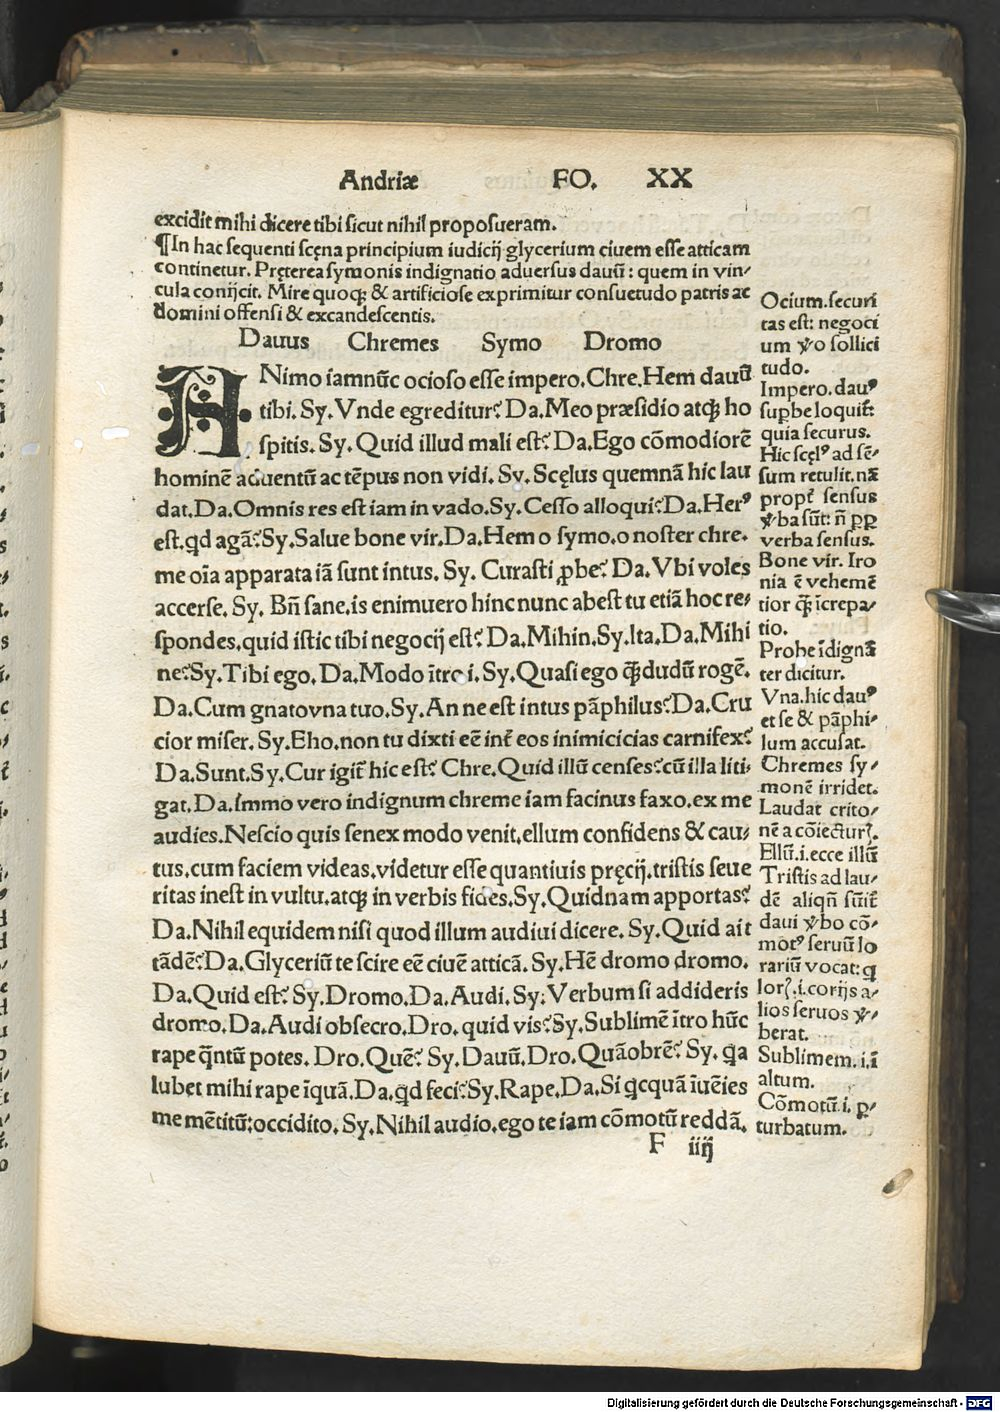 Andriæ FO. XX
excidit mihi dicere tibi sicut nihil proposueram.
¶In hac sequenti scęna principium iudicij glycerium ciuem esse atticam
continetur. Pręterea symonis indignatio aduersus dauũ: quem in vin/
cula conijcit. Mire quoqȝ & artificiose exprimitur consuetudo patris ac
domini offensi & excandescentis.
Dauus Chremes Symo Dromo
ANimo iamnũc ocioso esse impero. Chre. Hem dauũ
tibi. Sy. Vnde egreditur? Da. Meo præsidio atqȝ ho
spitis. Sy. Quid illud mali est? Da. Ego cõmodiorẽ
hominẽ aduentũ ac tẽpus non vidi. Sy. Scęlus quemnã hic lau
dat. Da. Omnis res est iam in vado. Sy. Cesso alloqui? Da. Herꝰ
est. qd agã? Sy. Salue bone vir. Da. Hem o symo. o noster chre.
me oĩa apparata iã sunt intus. Sy. Curasti ꝓbe? Da. Vbi voles
accerse. Sy. Bñ sane. is enimuero hinc nunc abest tu etiã hoc re/
spondes. quid istic tibi negocij est? Da. Mihin. Sy. Ita. Da. Mihi
ne? Sy. Tibi ego. Da. Modo ĩtro i. Sy. Quasi ego qȝ̃ dudũ rogẽ.
Da. Cum gnato vna tuo. Sy. An ne est intus pãphilus? Da. Cru
cior miser. Sy. Eho. non tu dixti eẽ int̃ eos inimicicias carnifex?
Da. Sunt. Sy. Cur igit̃ hic est? Chre. Quid illũ censes? cũ illa liti/
gat. Da. Immo vero indignum chreme iam facinus faxo. ex me
audies. Nescio quis senex modo venit. ellum confidens & cau/
tus. cum faciem videas. videtur esse quantiuis pręcij. tristis seue
ritas inest in vultu. atqȝ in verbis fides. Sy. Quidnam apportas?
Da. Nihil equidem nisi quod illum audiui dicere. Sy. Quid ait
tãdẽ? Da. Glyceriũ te scire eẽ ciuẽ atticã. Sy. Hẽ dromo dromo.
Da. Quid est? Sy. Dromo. Da. Audi. Sy. Verbum si addideris
dromo. Da. Audi obsecro. Dro. quid vis? Sy. Sublimẽ ĩtro hũc
rape q̃ntũ potes. Dro. Quẽ? Sy. Dauũ. Dro. Quãobrẽ? Sy. qa
lubet mihi rape ĩquã. Da. qd feci? Sy. Rape. Da. Si qcquã ĩuẽies
me mẽtitũ: occidito. Sy. Nihil audio. ego te iam cõmotũ reddã.
F iiij
Ocium. securi
tas est: negoci
um ꝟo sollici
tudo.
Impero. dauꝰ
supbe loquit̃:
quia securus.
Hic scęlꝰ ad sẽ/
sum retulit. nã
propt̃ sensus
ꝟba sũt: ñ ꝓp̱
verba sensus.
Bone vir. Iro
nia ẽ vehemẽ
tior qȝ̃ ĩcrepa/
tio.
Probe ĩdignã
ter dicitur.
Vna. hic dauꝰ
et se & pãphi/
lum accusat.
Chremes sy/
monẽ irridet.
Laudat crito/
nẽ a cõiecturꝭ.
Ellũ. i. ecce illũ
Tristis ad lau/
dẽ aliqñ sũit̃
daui ꝟbo cõ/
motꝰ seruũ lo
rariũ vocat: q
lorꝭ. i. corijs a/
lios seruos ꝟ/
berat.
Sublimem. i. ĩ
altum.
Cõmotũ. i. p/
turbatum.
Digitalisierung gefördert durch die Deutsche Forschungsgemeinschaft - DFG